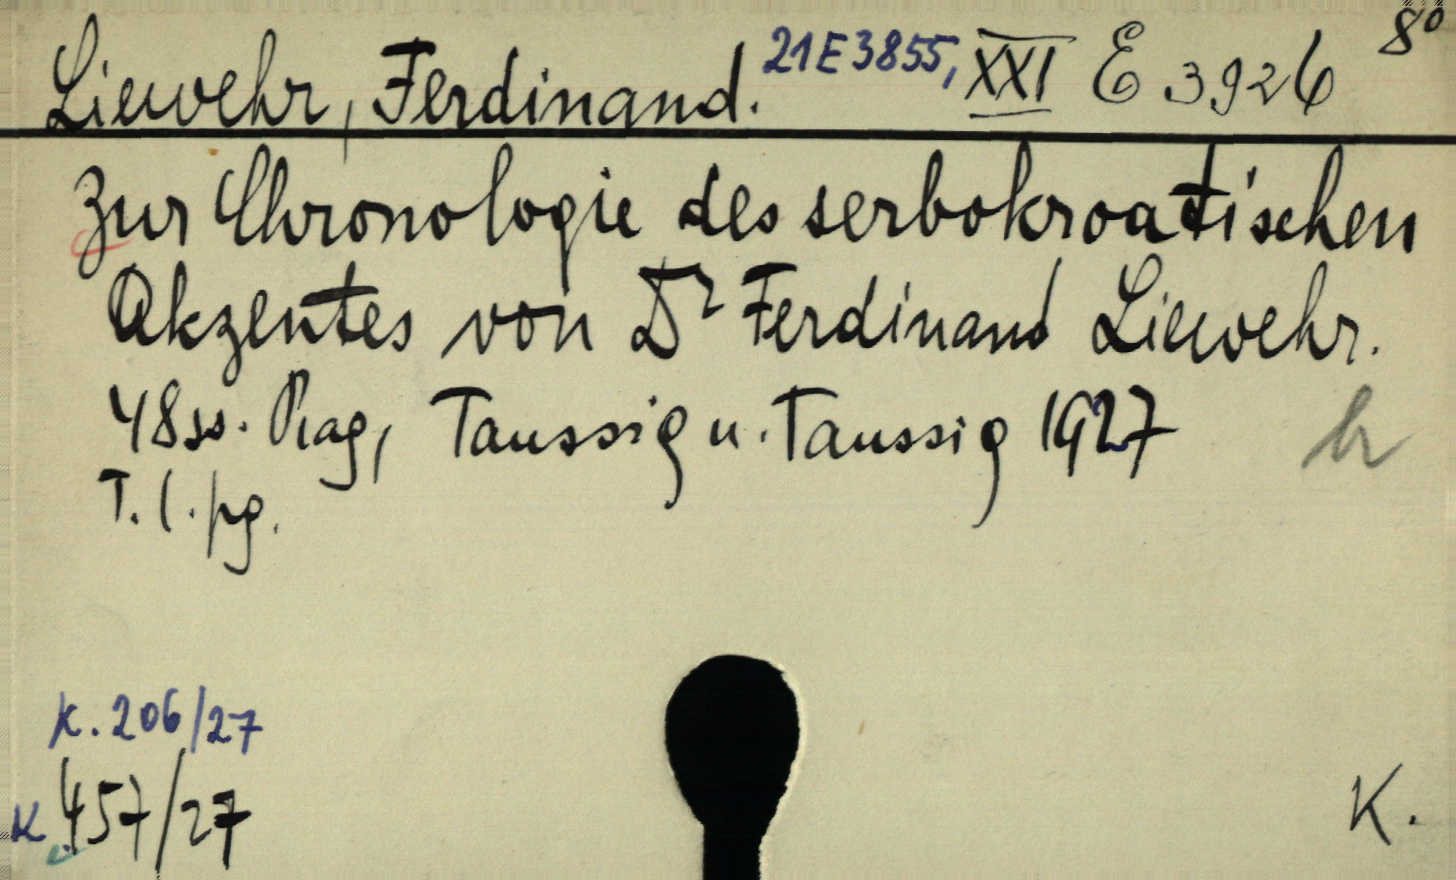 Liewehr, Ferdinand. 21E3855, XXI E 3926 8°
Zur Chronologie des serbokroatischen
Akzentes von Dr Ferdinand Liewehr.
48 ss. Prag, Taussig u. Taussig 1927
T. l. pg.
k. 206/27
K 457/27
K.